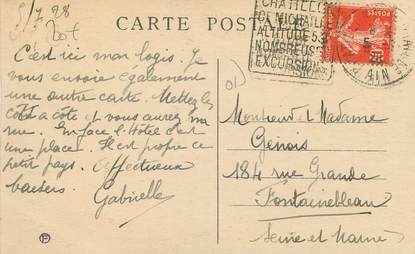 5/7 28
20f
CARTE POSTALE
C'est ici mon logis. Je
vous envoie également
une autre carte. Mettez les
côte à côte et vous aurez ma
rue. En face l'Hôtel c'est
une place. Il est propre ce
petit pays. Affectueux
baisers
Gabrielle
CHATILLON
ALTITUDE 53
NOMBREUSES
EXCURSIONS
POSTES
5
28
AIN
Monsieur et Madame
Genois
184 rue Grande
Fontainebleau
Seine et Marne